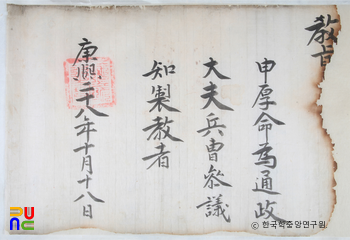 教旨
申厚命為通政
大夫兵曹叅議
知製教者
康熙二十八年十月十八日
ⓒ 한국학중앙연구원